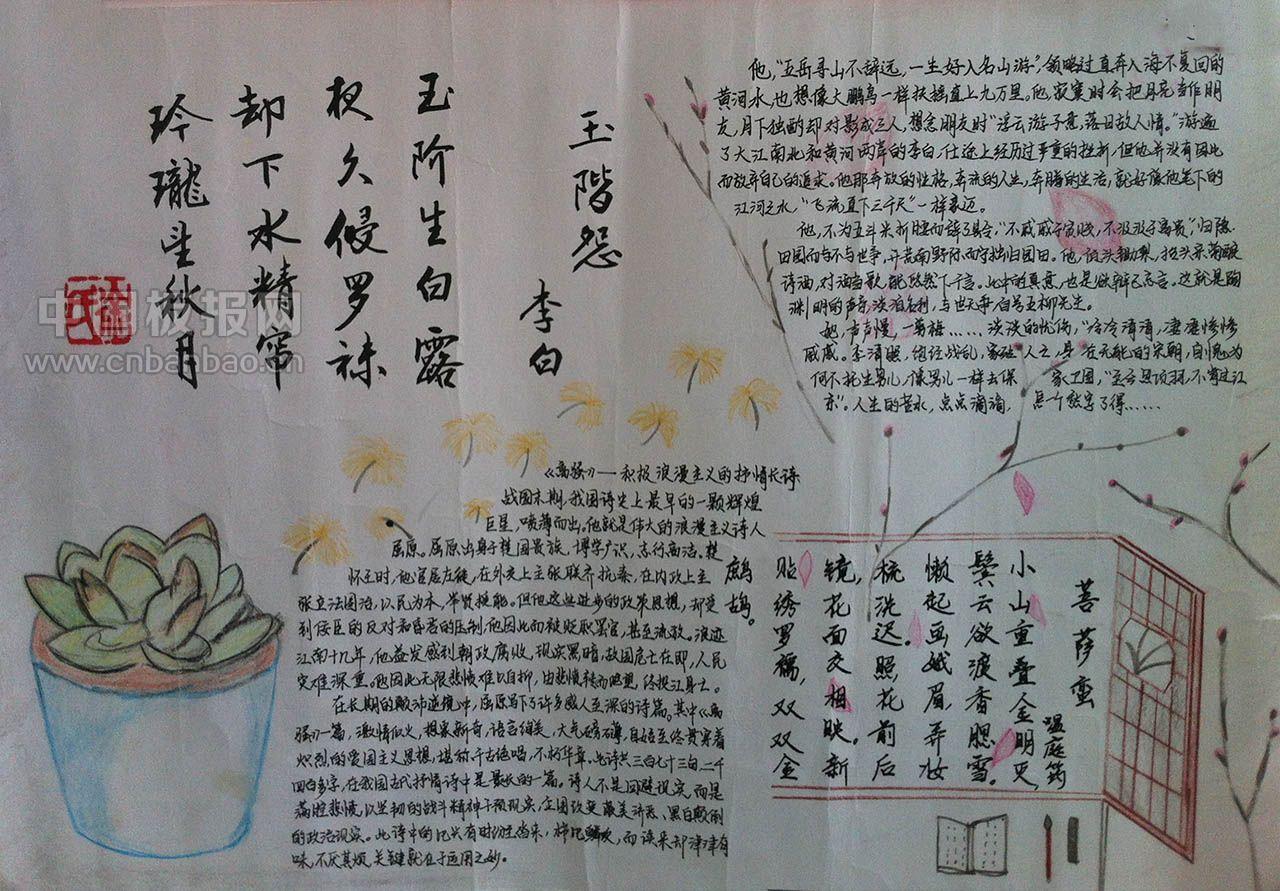 玉階怨
李白
玉阶生白露
夜久侵罗袜
却下水精帘
玲瓏望秋月
中国板报网
www.cnbanbao.cn
他，“五岳寻山不辞远，一生好入名山游”，领略过直奔入海不复回的
黄河水，也想像大鹏鸟一样扶摇直上九万里。他，寂寞时会把月亮当作朋
友，月下独酌却对影成三人，想念朋友时“浮云游子意，落日故人情。”游遍
了大江南北和黄河两岸的李白，仕途上经历过严重的挫折，但他并没有因此
而放弃自己的追求。他那奔放的性格，奔流的人生，奔腾的生活，就好像他笔下的
江河之水，“飞流直下三千尺”一样豪迈。
他，不为五斗米折腰而辞了县令，“不戚戚于贫贱，不汲汲于富贵，”归隐
田园而与不与世争，开荒南野际而守拙归园田。他，低头锄梨，抬头采菊酿
诗酒，对酒当歌，
此中的真意，也是欲辨已忘言。这就是陶
渊明的声音，淡泊名利，与世无争，自号五柳先生。
她，声声慢，一剪梅……淡淡的忧伤，“冷冷清清，凄凄惨惨
戚戚。李清照，饱经战乱，家破人亡，身在无能的宋朝，自愧为
何不托生男儿，像男儿一样去保家卫国，“至今思项羽，不肯过江
东”。人生的苦水，点点滴滴，怎一个愁字了得……
《离骚》——积极浪漫主义的抒情长诗
战国末期，我国诗史上最早的一颗辉煌
巨星，喷薄而出。他就是伟大的浪漫主义诗人
屈原。屈原出身于楚国贵族，博学广识，志行高洁。楚
怀王时，他官居左徒，在外交上主张联齐抗秦，在内政上主
张立法图治，以民为本，举贤授能。但他这些进步的政策思想，却受
到佞臣的反对和昏君的压制，他因此而被贬职罢官，甚至流放。浪迹
江南十几年，他益发感到朝政腐败，现实黑暗，故国危亡在即，人民
灾难深重。他因此无限悲愤难以自抑，由悲愤转而绝望，终投江身亡。
在长期的颠沛逆境中，屈原写下了许多感人至深的诗篇。其中《离
骚》一篇，激情似火，想象新奇，语言绚美，大气磅礴，自始至终贯穿着
炽烈的爱国主义思想，堪称千古绝唱，不朽华章。此诗共三百七十三句，二千
四百多字，在我国古代抒情诗中是最长的一篇。诗人不是回避现实，而是
满腔悲愤，以坚韧的战斗精神干预现实，企图改变
黑白颠倒
的政治现实。此诗中的
而读来却津津有
味，不厌其烦，关键就在于运用之妙。
菩萨蛮
温庭筠
小山重叠金明灭，
鬓云欲渡香腮雪。
懒起画娥眉，弄妆
梳洗迟。照花前后
镜，花面交相映。新
贴绣罗襦，双双金
鹧鸪。